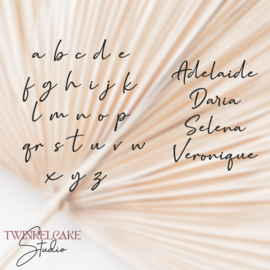 a b c d e
f g h i j k
l m n o p
q r s t u v w
x y z
Adelaide
Daria
Selena
Veronique
TWINKELCAKE
Studio